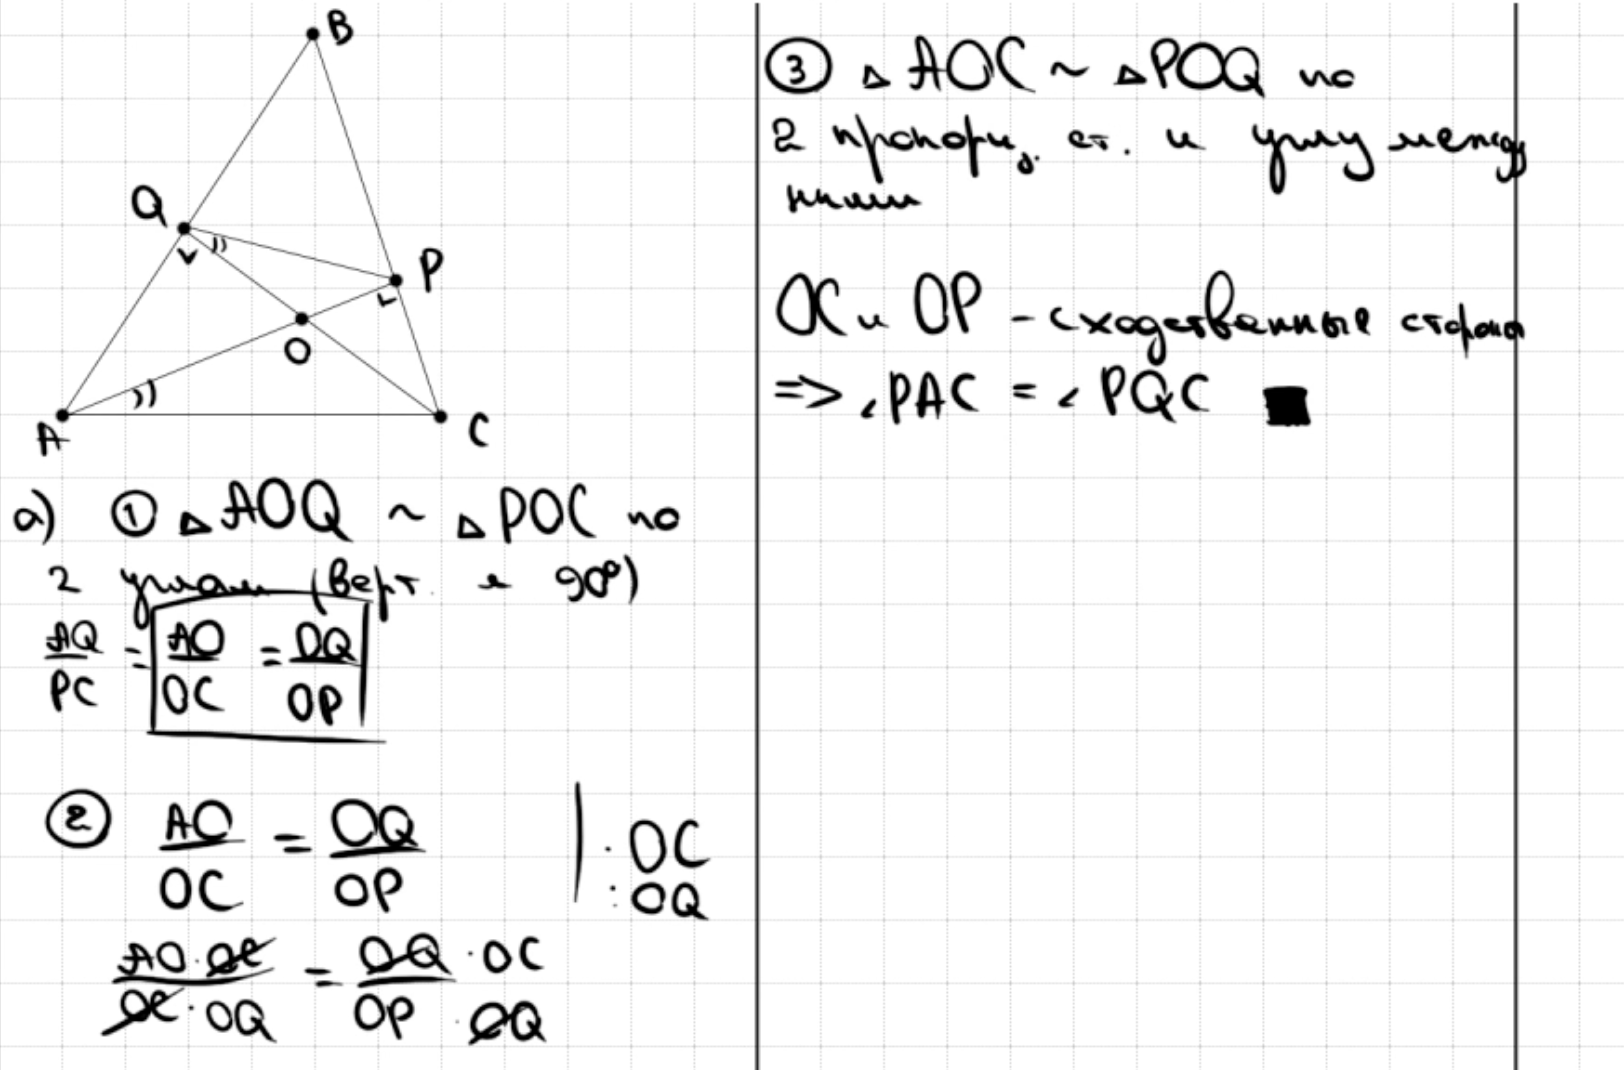 B
Q
P
O
A
C
а) ① △AOQ ~ △POC по
2 углам (верт. и 90°)
AQ/PC = AO/OC = OQ/OP
② AO/OC = OQ/OP | · OC : OQ
AO · OC / OC · OQ = OQ · OC / OP · OQ
③ △AOC ~ △POQ по
2 пропорц. ст. и углу между
ними
OC и OP - сходственные стороны
=> ∠PAC = ∠PQC ■